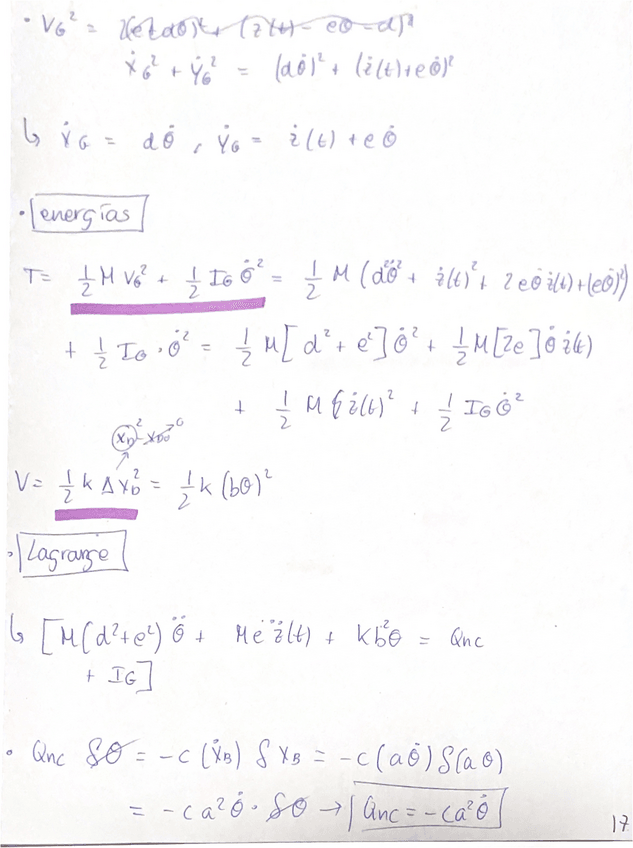 • V_G² = 2(e+dθ̇)² + (ż(t) - eθ - d)²
Ẋ_G² + Ẏ_G² = (dθ̇)² + (ż(t)+eθ̇)²
↳ Ẋ_G = dθ̇ , Ẏ_G = ż(t) + eθ̇
• energías
T = 1/2 M V_G² + 1/2 I_G θ̇² = 1/2 M (d²θ̇² + ż(t)² + 2eθ̇ż(t) + (eθ̇)²)
+ 1/2 I_G · θ̇² = 1/2 M [d² + e²] θ̇² + 1/2 M [2e] θ̇ ż(t)
+ 1/2 M ż(t)² + 1/2 I_G θ̇²
X_D² - X_D0² → 0
V = 1/2 k Δx_D² = 1/2 k (bθ)²
• Lagrange
↳ [M(d²+e²) θ̈ + M e z̈(t) + k b²θ = Qnc
+ I_G]
• Qnc δθ = -c (ẋ_B) δx_B = -c (aθ̇) δ(aθ)
= -ca²θ̇ · δθ → Qnc = -ca²θ̇
17